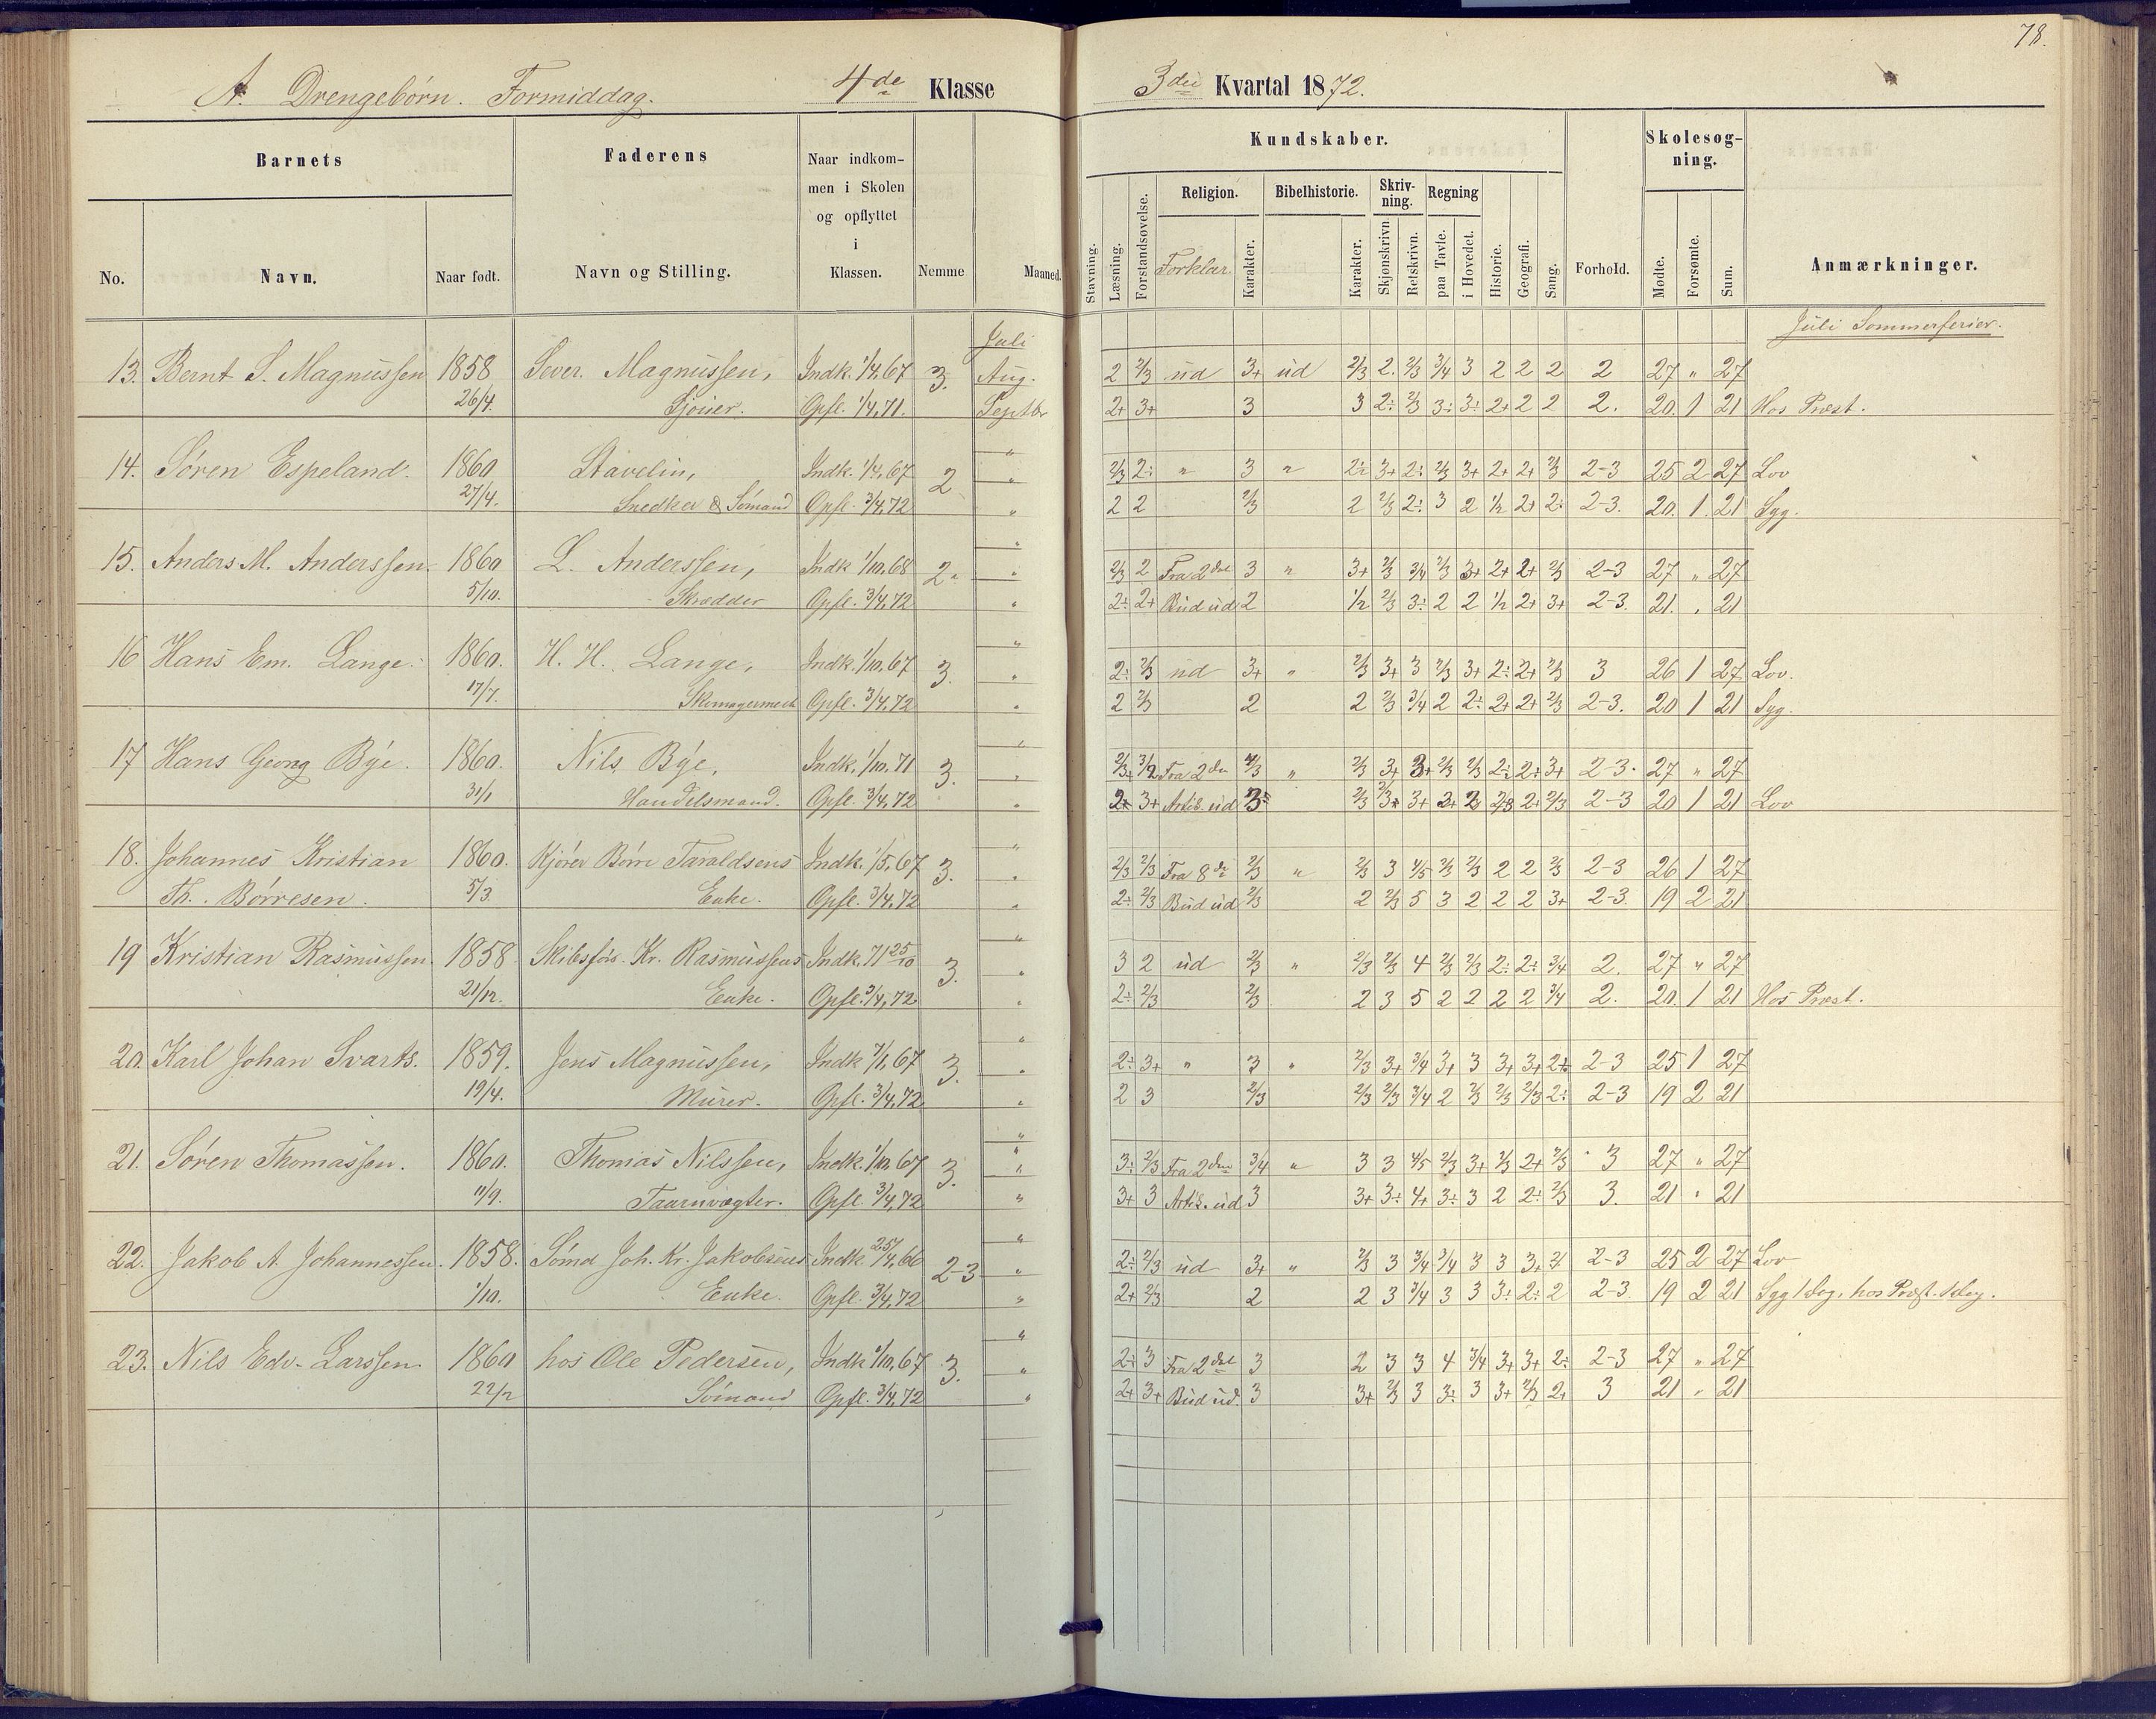 78.
A. Drengebørn. Formiddag. 4de Klasse 3die Kvartal 1872.
Barnets Faderens Naar indkommen i Skolen og opflyttet i Klassen. Nemme Maaned. Kundskaber. Forhold. Skolesøgning. Anmærkninger.
No. Navn. Naar født. Navn og Stilling.
Stavning. Læsning. Forstandsøvelse. Religion. Forklar. Karakter. Bibelhistorie. Karakter. Skrivning. Skjønskrivn. Retskrivn. Regning paa Tavle. i Hovedet. Historie. Geografi. Sang. Mødte. Forsømte. Sum.
Juli Juli Sommerferier.
13. Bernt S. Magnussen 1858 Sever. Magnussen, Indk. 1/4,67 3. Aug. 2 2/3 ud 3+ ud 2/3 2. 2/3 3/4 3 2 2 2 2 27 " 27
26/4. Sjouer. Opfl. 1/4,71. Septbr 2+ 3+ 3 3 2÷ 2/3 3÷ 3÷ 2+ 2 2 2. 20. 1 21 Hos Præst.
14. Søren Espeland. 1860 Stavelin, Indk. 1/4,67 2 " 2/3 2÷ " 3 " 2÷ 3+ 2÷ 2/3 3+ 2+ 2+ 2/3 2-3 25 2 27 Lov
27/4. Snedker & Sømand Opfl. 3/4,72 " 2 2 2/3 2 2/3 2÷ 3 2 1/2 2+ 2÷ 2-3. 20. 1. 21 Syg.
15. Anders M. Anderssen. 1860 L. Anderssen, Indk 1/10,68 2÷ " 2/3 2 Fra 2det 3 " 3+ 2/3 3/4 2/3 3+ 2+ 2+ 2/3 2-3 27 " 27
5/10. Skrædder Opfl. 3/4,72 " 2÷ 2+ Bud ud 2 1/2 2/3 3÷ 2 2 1/2 2+ 3+ 2-3. 21. " 21
16 Hans Em. Lange. 1860. H. H. Lange, Indk. 1/10,67 3. " 2÷ 2/3 ud 3+ " 2/3 3+ 3 2/3 3+ 2÷ 2+ 2/3 3 26 1 27 Lov.
17/7. Skomagermest Opfl. 3/4,72 " 2 2/3 2 2 2/3 3/4 2 2÷ 2+ 2+ 2/3 2-3. 20 1 21 Syg.
17 Hans Georg Bÿe. 1860. Nils Bÿe, Indk. 1/10,71 3. " Fra 2den " 2/3 3+ 3+ 2/3 2/3 2÷ 2÷ 3+ 2-3. 27 " 27
31/1 Handelsmand. Opfl. 3/4,72 " 2+ 3+ Artik. ud 2/3 3+ 3+ 2+ 2+ 2/3 2-3 20 1 21 Lov
18. Johannes Kristian 1860. Kjører Børre Taraldsens Indk. 1/5,67 3. " 2/3 2/3 Fra 8de 2/3 " 2/3 3 4/5 2/3 2/3 2 2 2/3 2-3 26 1 27
Th. Børresen. 5/3. Enke. Opfl. 3/4,72 " 2÷ 2/3 Bud ud 2/3 2 2/3 5 3 2 2 2 3+ 2-3. 19 2 21
19 Kristian Rasmussen. 1858. Skibsfør. Kr. Rasmussens Indk. 71 25/10 3. " 3 2 ud 2/3 " 2/3 2/3 4 2/3 2/3 2÷ 2÷ 3/4 2. 27 " 27
21/12. Enke. Opfl. 3/4,72 " 2÷ 2/3 2/3 2 3 5 2 2 2 2 3/4 2. 20. 1 21 Hos Præst.
20. Karl Johan Svarts. 1859. Jens Magnussen, Indk 7/1,67 3. " 2÷ 3+ " 3 " 2/3 3+ 3/4 3+ 3 3+ 3+ 2÷ 2-3 25 1 27
19/4. Murer. Opfl. 3/4,72 " 2 3 2/3 2/3 2/3 3/4 2 2/3 2/3 2/3 2÷ 2-3 19 2 21
21. Søren Thomassen. 1860. Thomas Nilssen, Indk. 1/10,67 3. " 3÷ 2/3 Fra 2den 3/4 " 3 3 4/5 2/3 3+ 2/3 2+ 2/3 3 27 " 27
11/9. Taarnvægter. Opfl. 3/4,72 " 3+ 3 Artik. ud 3 3+ 3÷ 4+ 3÷ 3 2 2÷ 2/3 3. 21 " 21
22. Jakob A. Johannessen. 1858. Sømd Joh. Kr. Jakobsens Indk 25/4,66 2-3 " 2÷ 2/3 ud 3+ " 2/3 3 3/4 3/4 3 3 3+ 2-3 25 2 27 Lov
1/10. Enke. Opfl. 3/4,72 " 2+ 2/3 2 2 3 3/4 3 3 3÷ 2÷ 2 2-3. 19 2 21 Syg 1 Dag, hos Præst. 1 Dag.
23. Nils Edv. Larssen. 1860 hos Ole Pedersen, Indk 1/10,67 3. " 2÷ 3 Fra 2det 3 2 3 3 4 3/4 3+ 3+ 2÷ 2-3 27 " 27
22/2 Sømand Opfl. 3/4,72 " 2+ 3+ Bud ud. 3 3+ 2/3 3 3÷ 3 3+ 2/3 2+ 3 21 " 21